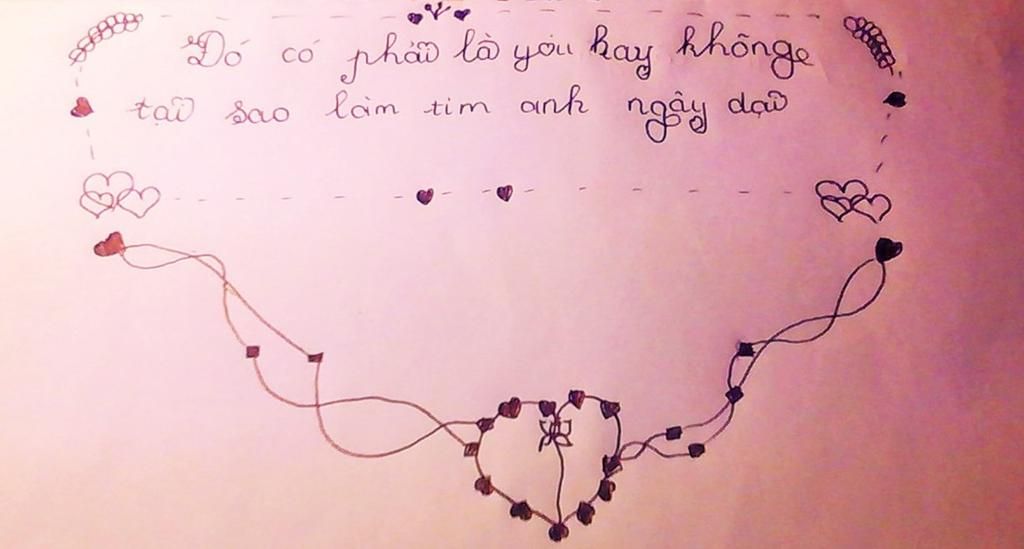 Đó có phải là yêu hay không
tại sao làm tim anh ngây dại